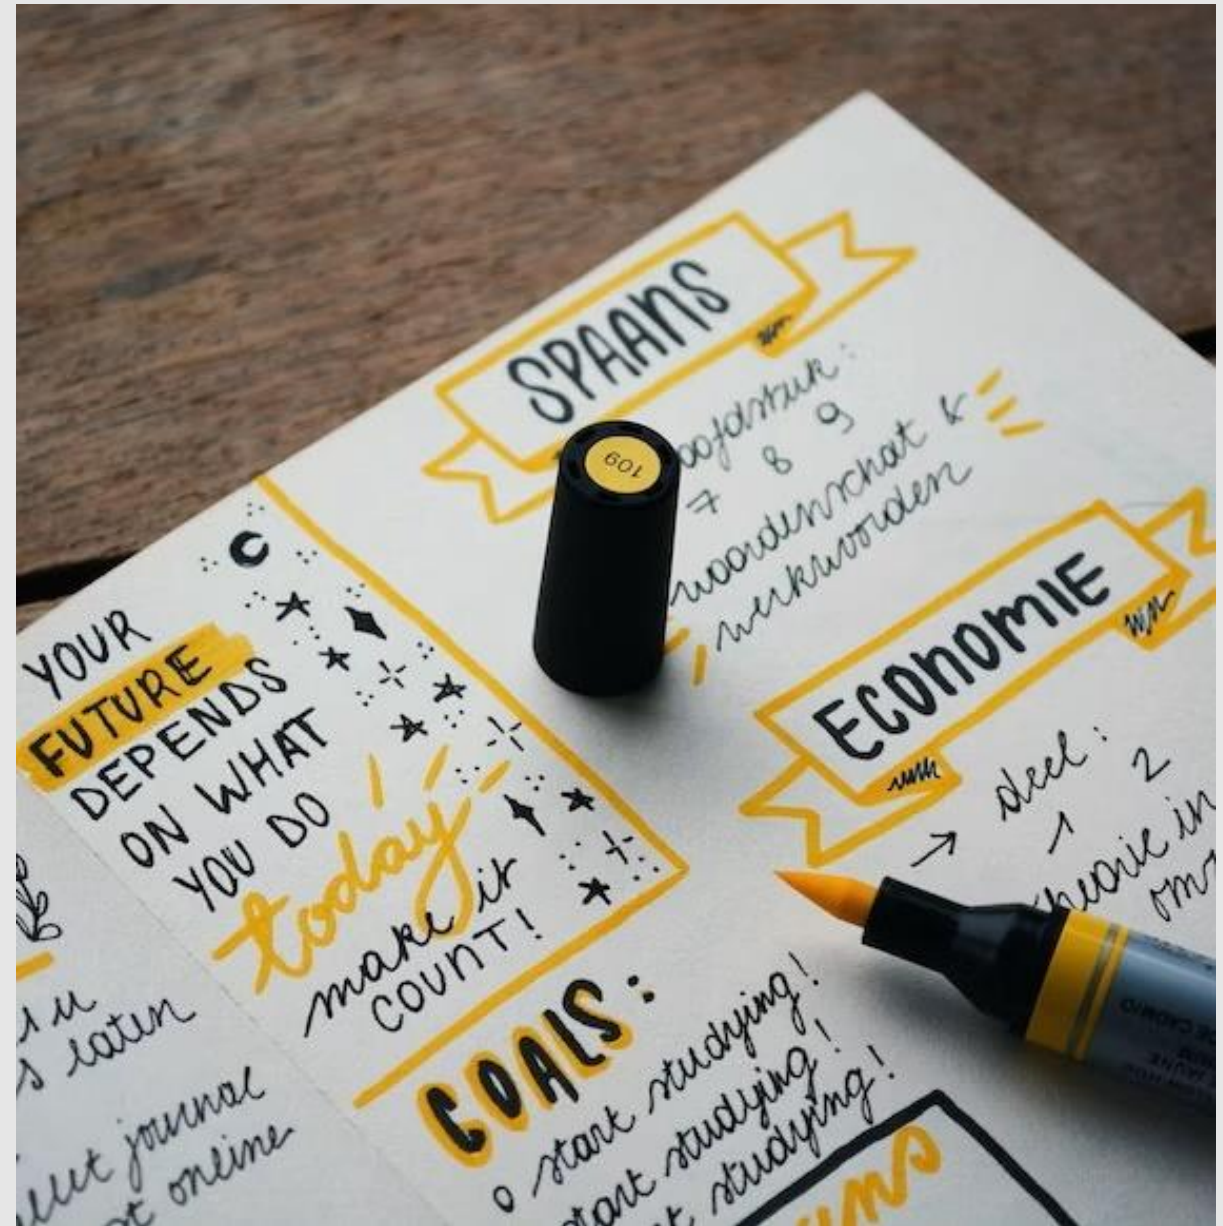 SPAANS
7 8 9
woordenschat &
werkwoorden
ECONOMIE
→ deel:
1 2
109
YOUR
FUTURE
DEPENDS
ON WHAT
YOU DO
today
make it
COUNT!
GOALS:
o start studying!
start studying!
studying!
laten
journal
online